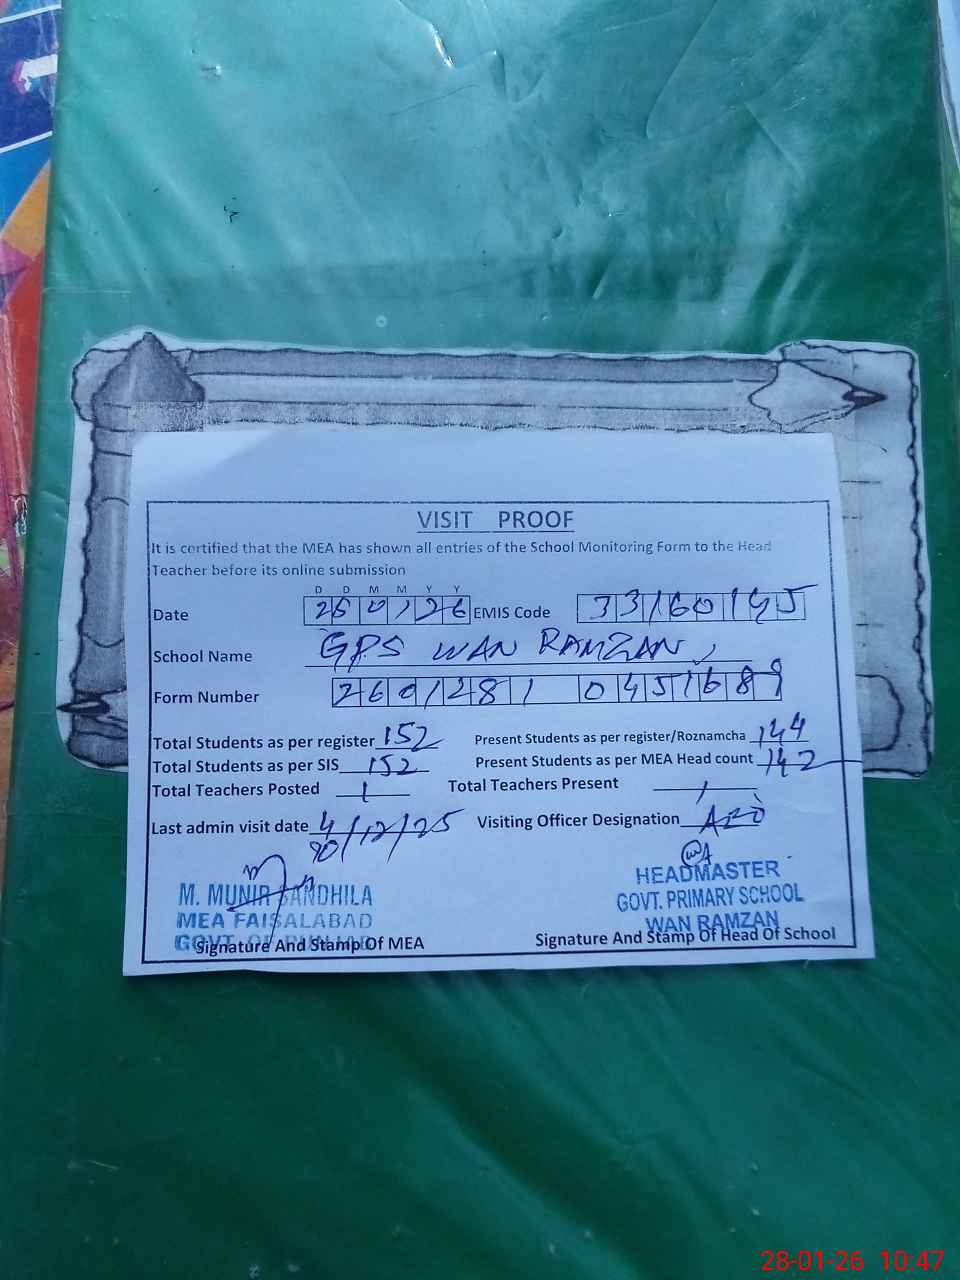 VISIT PROOF
It is certified that the MEA has shown all entries of the School Monitoring Form to the Head
Teacher before its online submission
D D M M Y Y
Date 280126 EMIS Code 33160145
School Name GPS WAN RAMZAN
Form Number 2601281 0451689
Total Students as per register 152 Present Students as per register/Roznamcha 144
Total Students as per SIS 152 Present Students as per MEA Head count 142
Total Teachers Posted 1 Total Teachers Present 1
Last admin visit date /12/25 Visiting Officer Designation AEO
M. MUNIR SANDHILA HEADMASTER
MEA FAISALABAD GOVT. PRIMARY SCHOOL
GOVT. WAN RAMZAN
Signature And Stamp Of MEA Signature And Stamp Of Head Of School
28-01-26 10:47